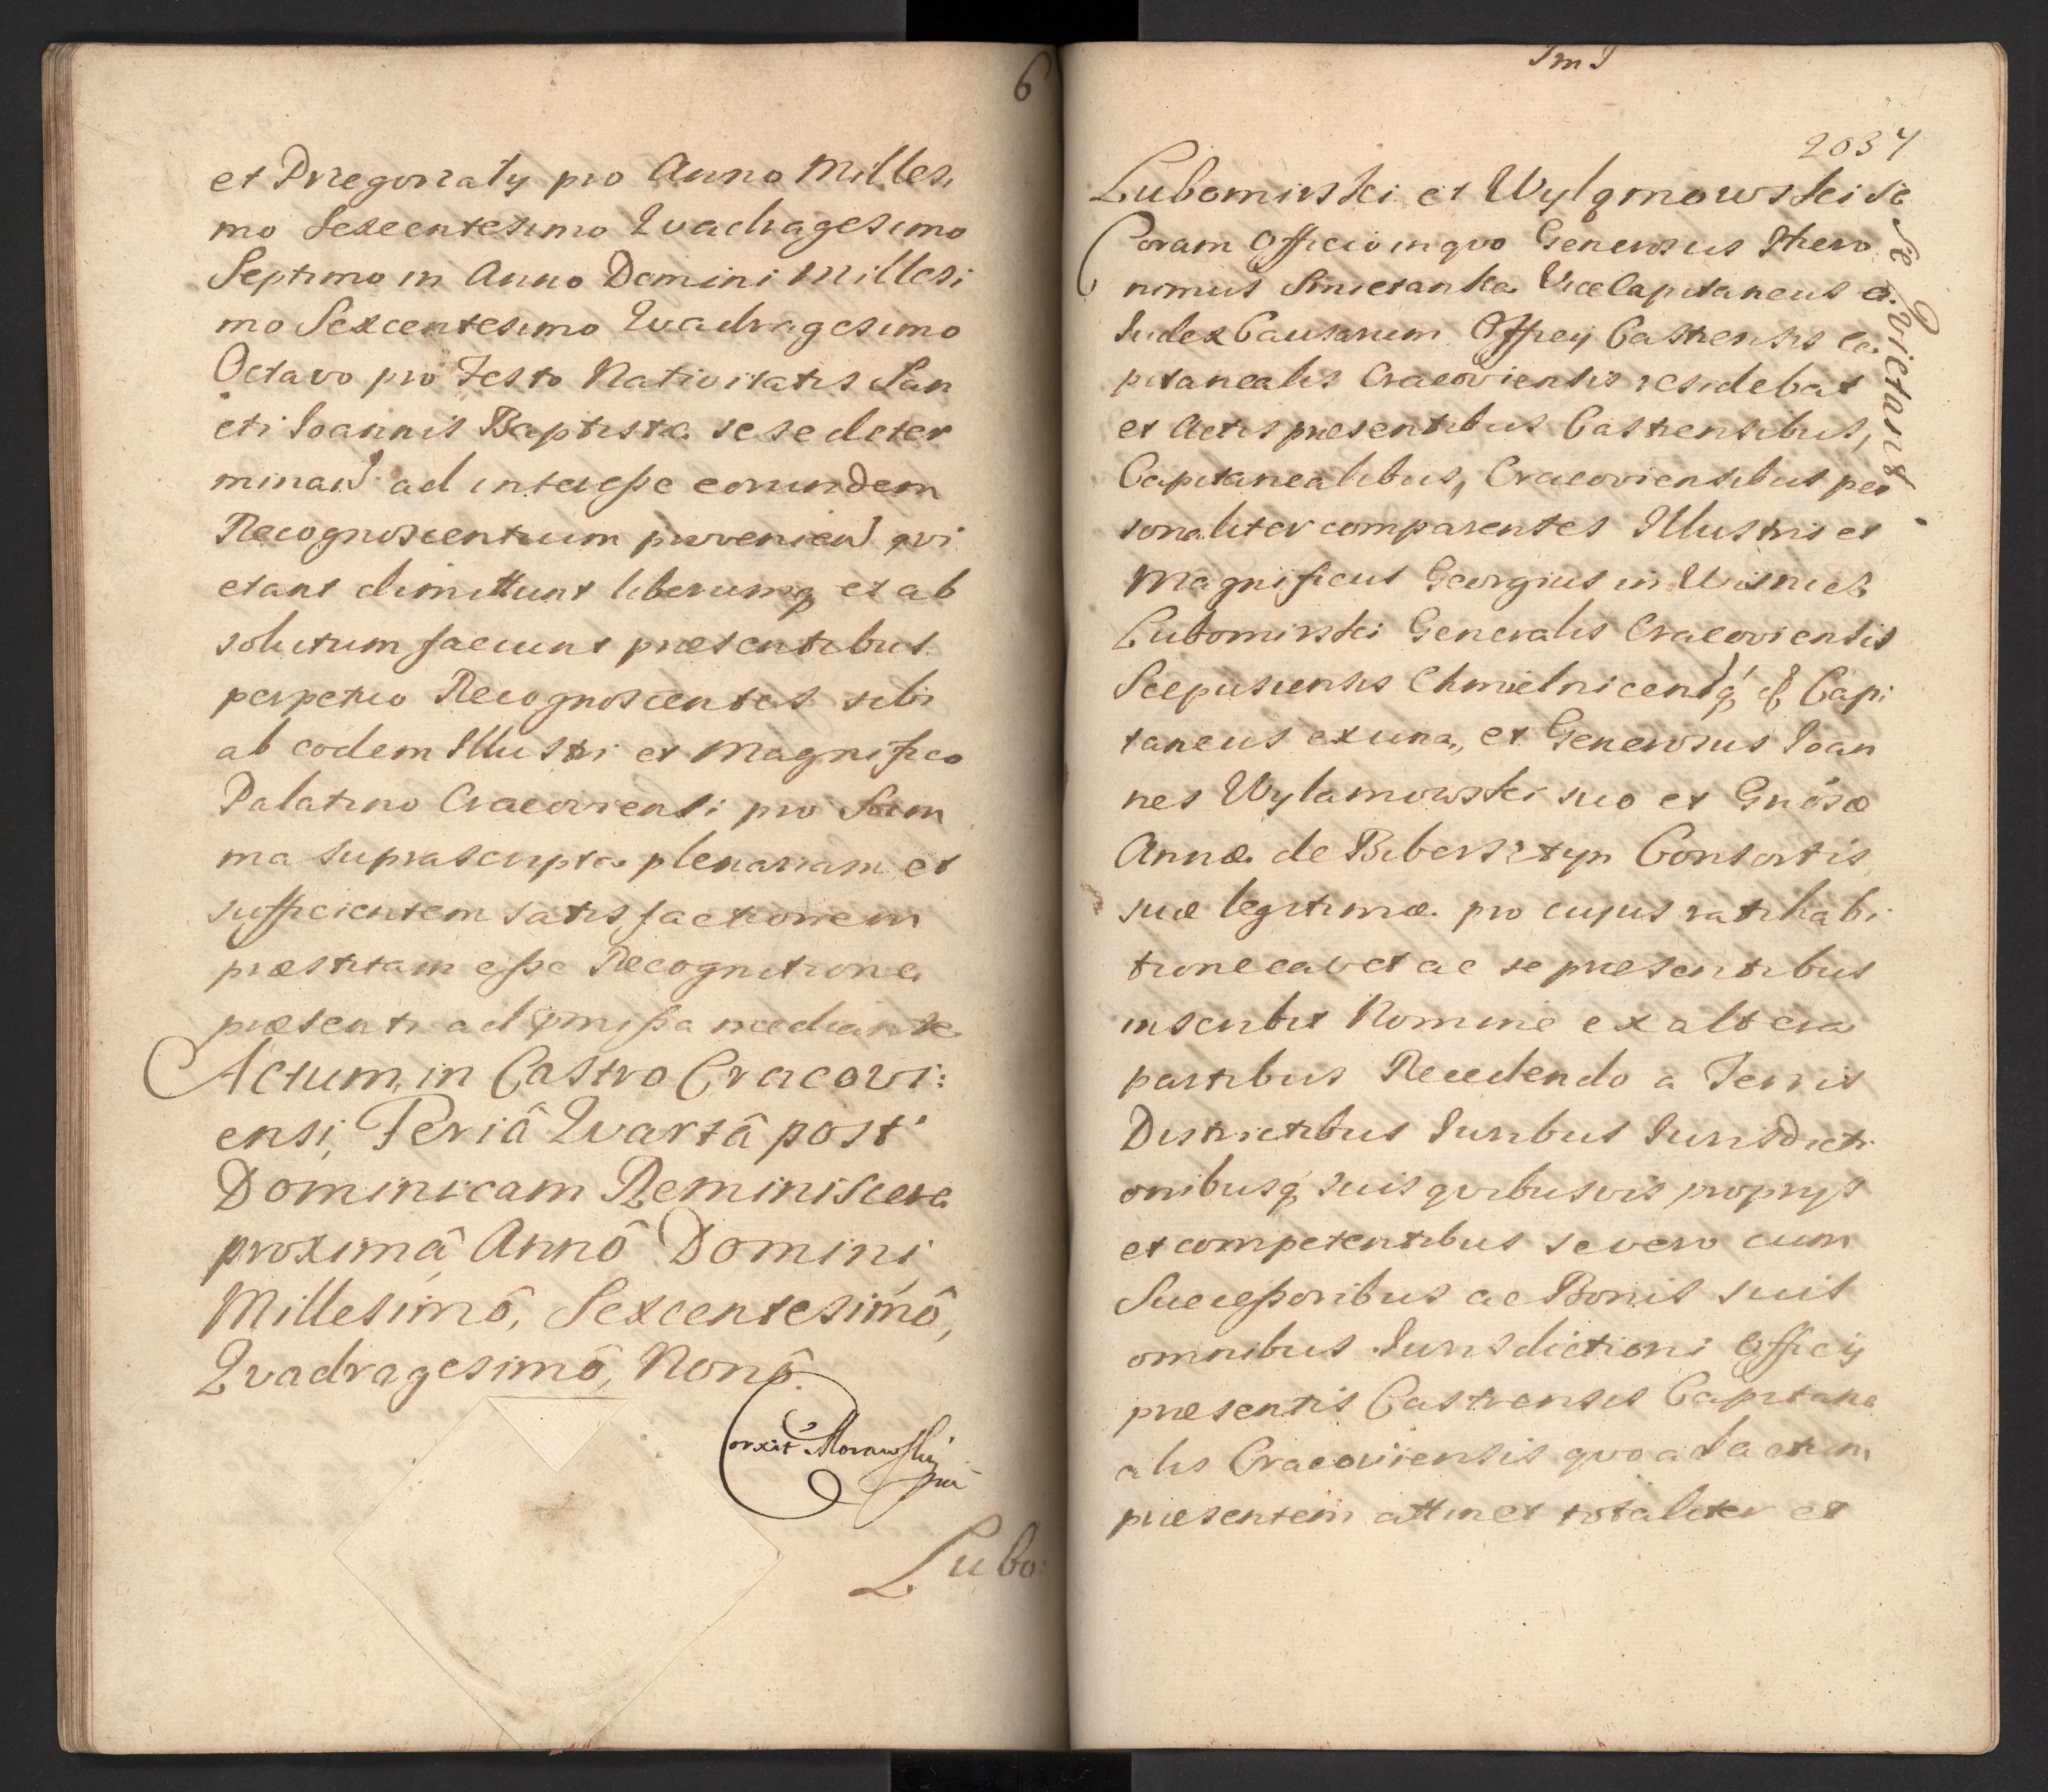 6
et Przegonaly pro Anno Milles,
mo Sexcentesimo Quadragesimo
Septimo in Anno Domini Millesi
mo Sexcentesimo Quadragesimo
Octavo pro Festo Nativitatis San
cti Joannis Baptistæ sese deter
minand ad interesse eorundem
Recognoscentium proveniend qvi
etant dimittunt liberumq et ab
solutum faciunt præsentibus
perpetuo Recognoscentes sibi
ab eodem Illustri et Magnifico
Palatino Cracoviensi pro Sum
ma suprascripta plenariam et
sufficientem satisfactionem
præstitam esse Recognitione
præsenti ad præmissa mediante
Actum, in Castro Cracovi:
ensi, Feriâ Qvartâ post
Dominicam Reminiscere
proximâ, Annô Domini
Millesimô, Sexcentesimô,
Qvadragesimô, Nonô.
Corxit Morawski
mp
Lubo:
2037
Lubomirski et Wylamowski se
Coram Officio in qvo Generosus Hiero
nimus Smietanka ViceCapitaneus et
Iudex Causarum Officij Castrensis Ca
pitanealis Cracoviensis residebat
et Actis præsentibus Castrensibus,
Capitanealibus, Cracoviensibus per
sonaliter comparentes Illustris et
Magnificus Georgius in Wisnicz
Lubomirski Generalis Cracoviensis
Scepusiensis Chmielnicensq Capi
taneus ex una, et Generosus Ioan
nes Wylamowski suo et Gnôsæ
Annæ de Biberstzyn Consortis
suæ legitimæ pro cujus ratihabi
tione cavet ac se præsentibus
inscribit Nomine ex altera
partibus Recedendo a Terris
Districtibus Iuribus Iurisdicti
onibusq suis qvibusvis proprijs
et competentibus se vero cum
Successoribus ac Bonis suis
omnibus Iurisdictioni Officij
præsentis Castrensis Capitane
alis Cracoviensis qvo ad actum
præsentem attinet totaliter et
se Qvictant